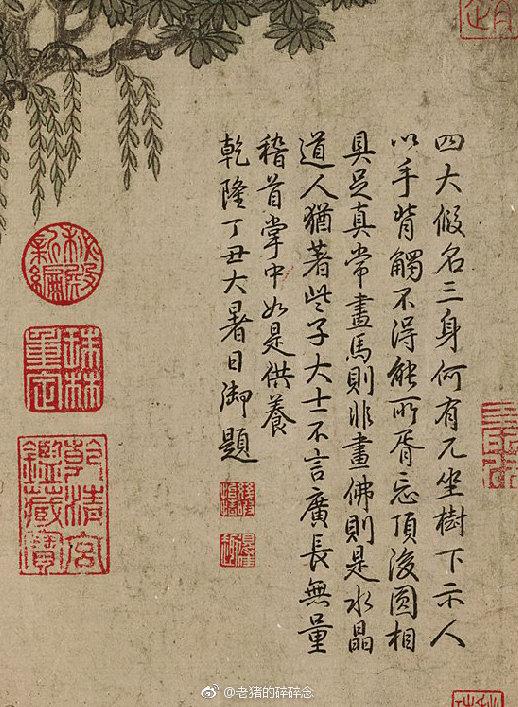 四大假名三身何有兀坐樹下示人
以手背觸不得能所胥忘頂後圓相
具足真常畫馬則非畫佛則是水晶
道人猶著些子大士不言廣長無量
稽首掌中如是供養
乾隆丁丑大暑日御題
秘殿新編
珠林重定
乾清宮鑑藏寶
@老猪的碎碎念